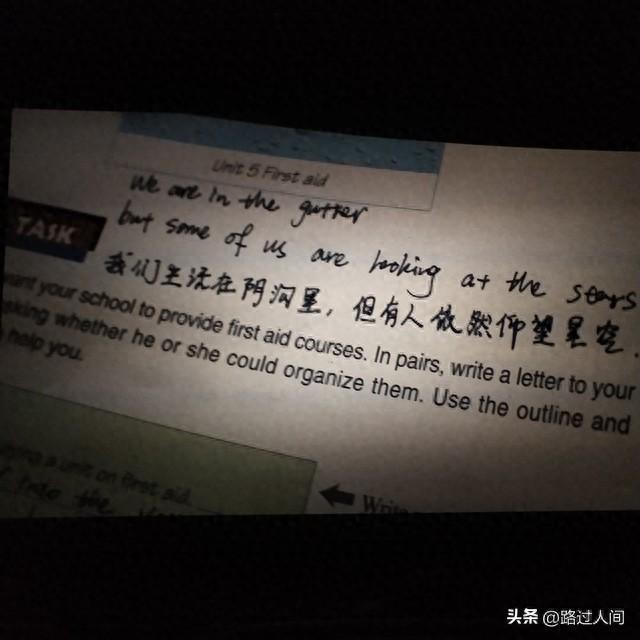 Unit 5 First aid
We are in the gutter
TASK
but some of us are looking at the stars
我们生活在阴沟里，但有人依然仰望星空.
want your school to provide first aid courses. In pairs, write a letter to your
king whether he or she could organize them. Use the outline and
help you.
a unit on first aid.
into the
Write
头条 @路过人间